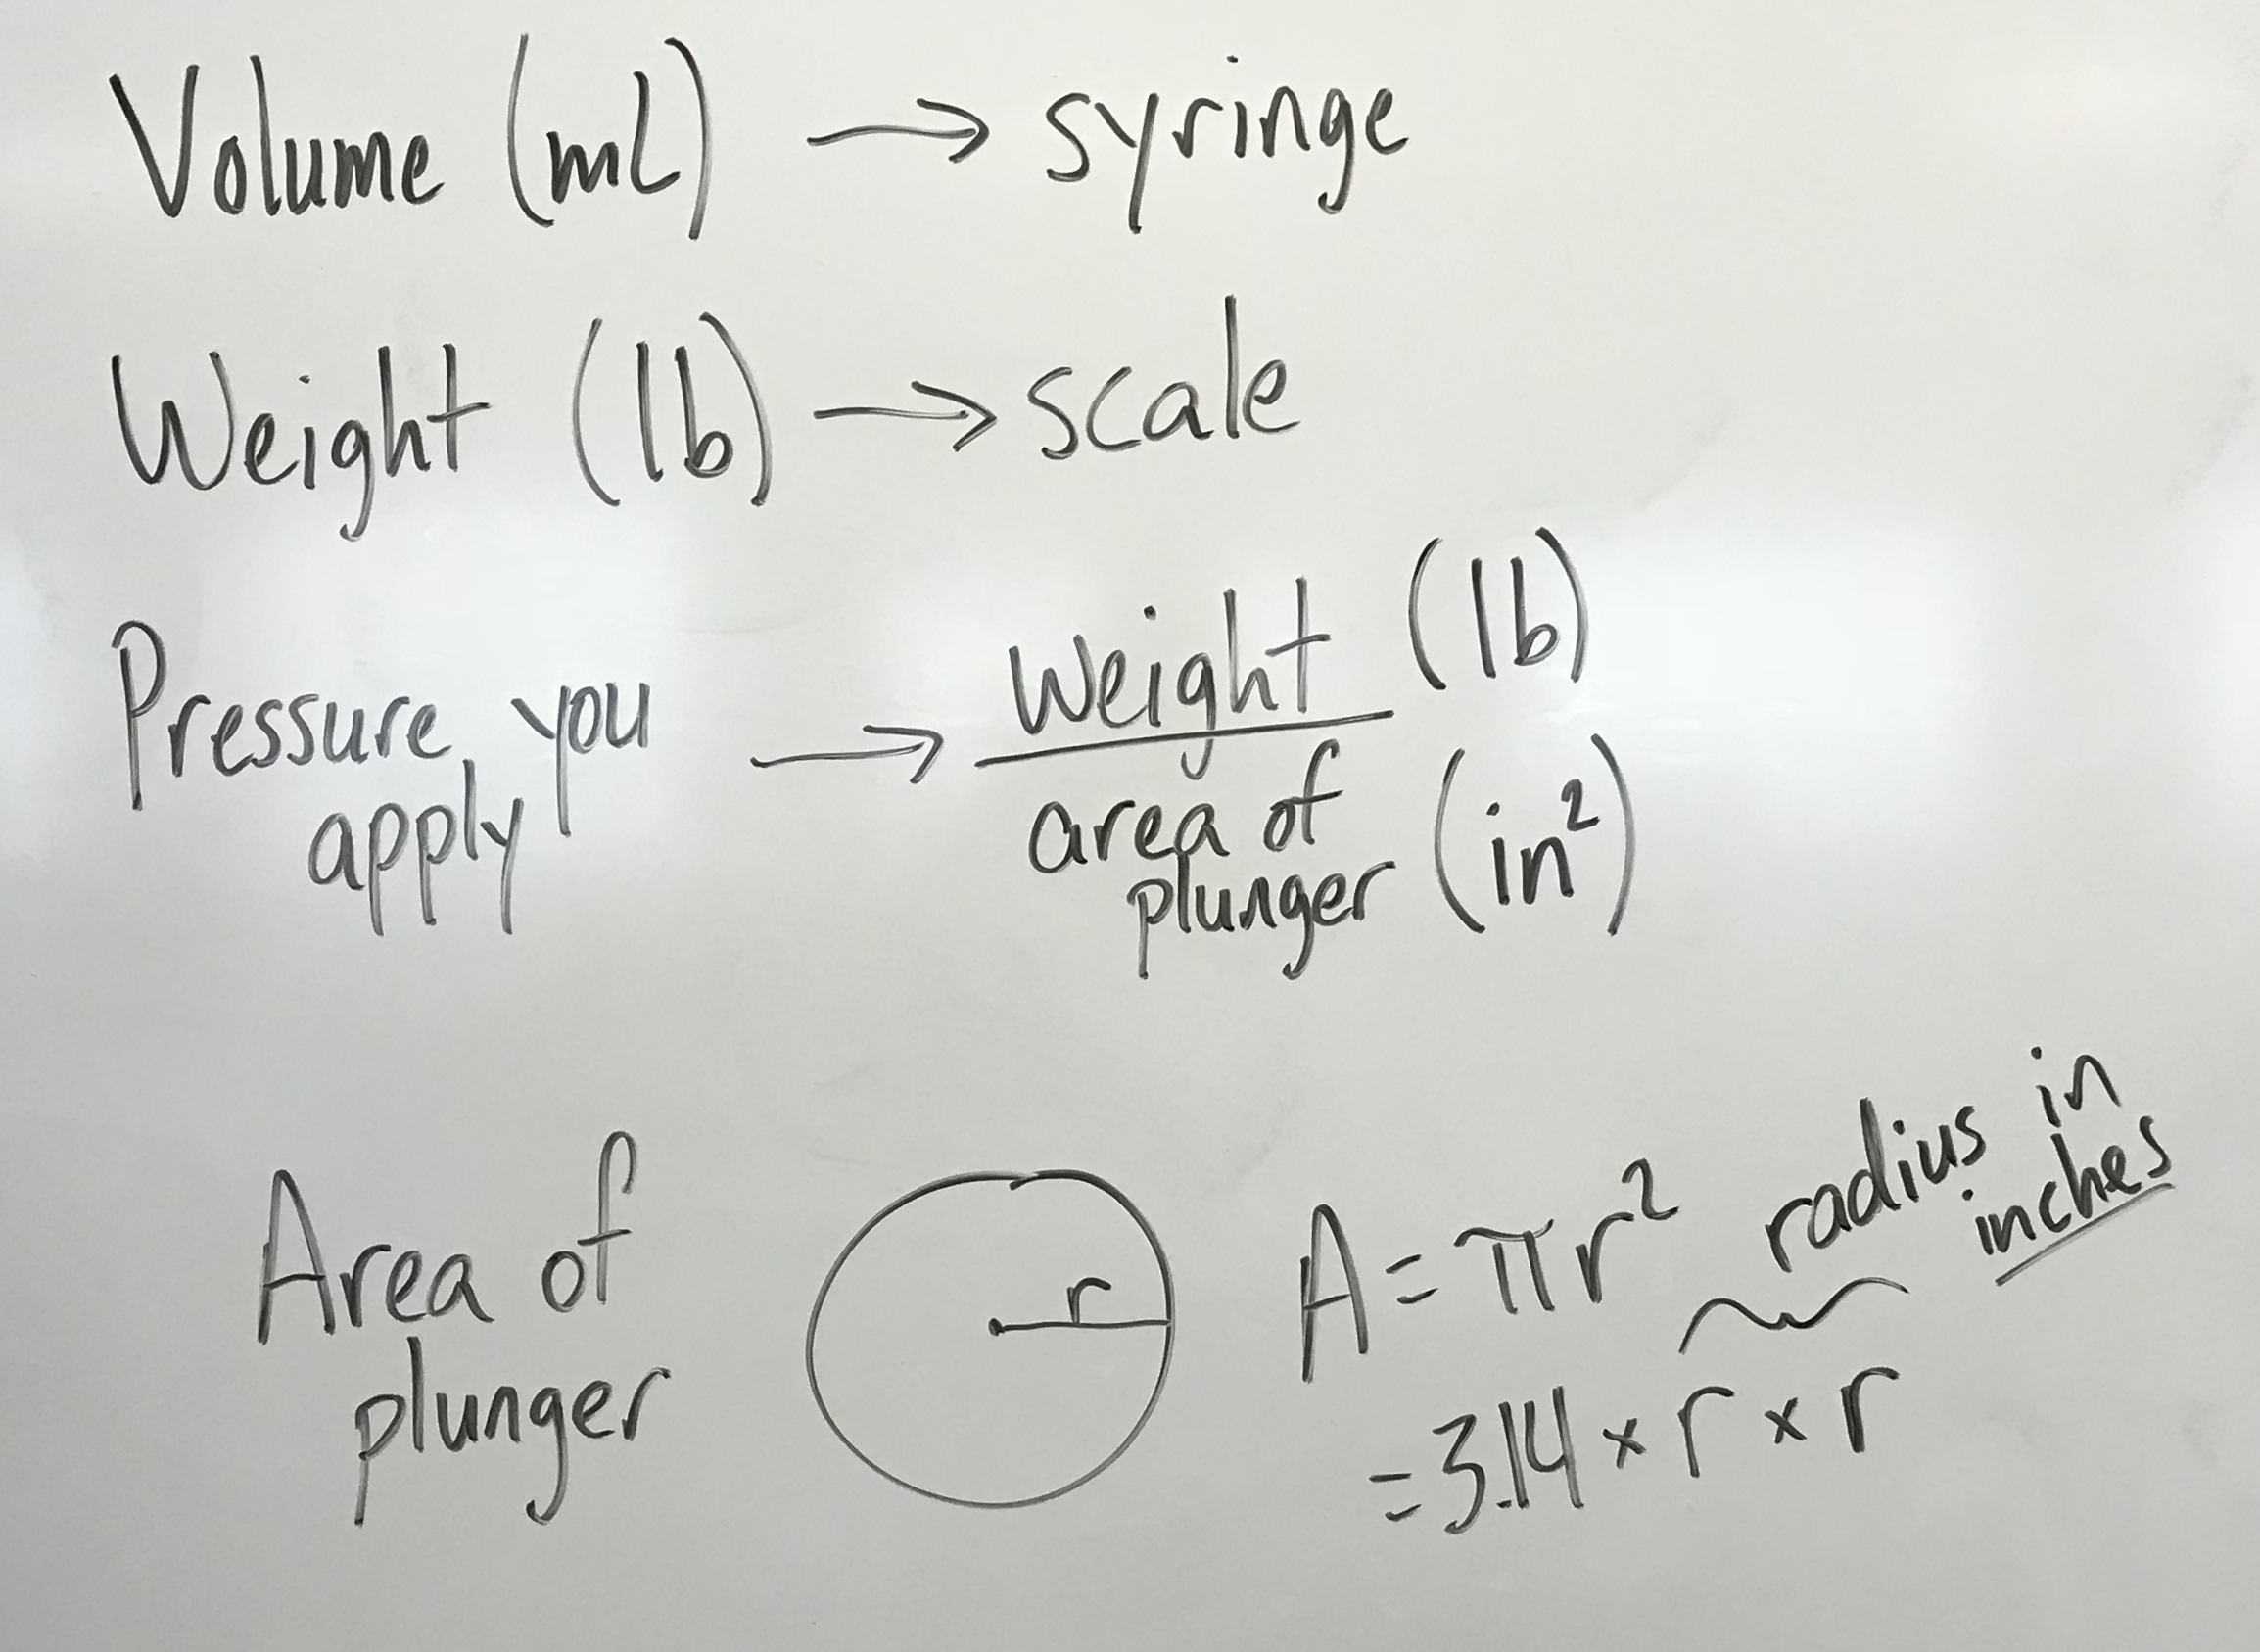 Volume (mL) → syringe
Weight (lb) → scale
Pressure you apply → Weight (lb)
area of plunger (in²)
Area of plunger
r
A = πr²
radius in
inches
= 3.14 × r × r